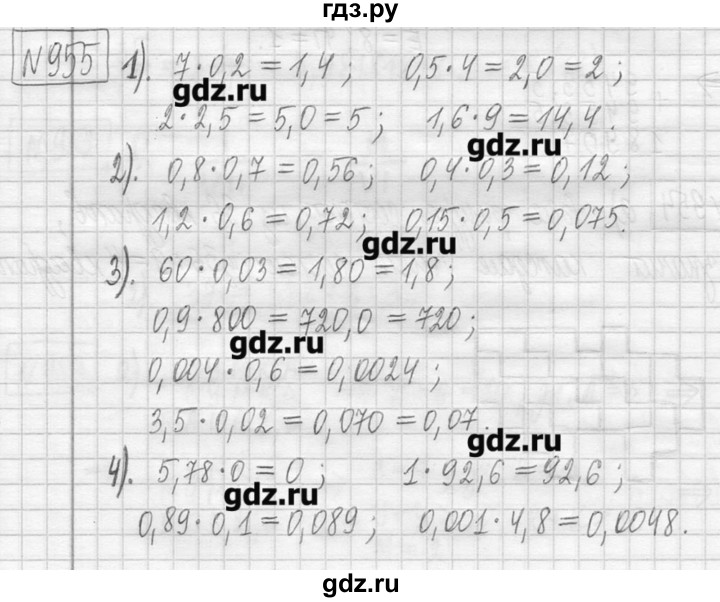 гдз.ру
№955 1). 7·0,2=1,4; 0,5·4=2,0=2;
gdz.ru
2·2,5=5,0=5; 1,6·9=14,4.
gdz.ru
2). 0,8·0,7=0,56; 0,4·0,3=0,12;
1,2·0,6=0,72; 0,15·0,5=0,075.
gdz.ru
3). 60·0,03=1,80=1,8;
0,9·800=720,0=720;
gdz.ru
0,004·0,6=0,0024;
3,5·0,02=0,070=0,07.
gdz.ru
4). 5,78·0=0; 1·92,6=92,6;
gdz.ru
0,89·0,1=0,089; 0,001·4,8=0,0048.
gdz.ru